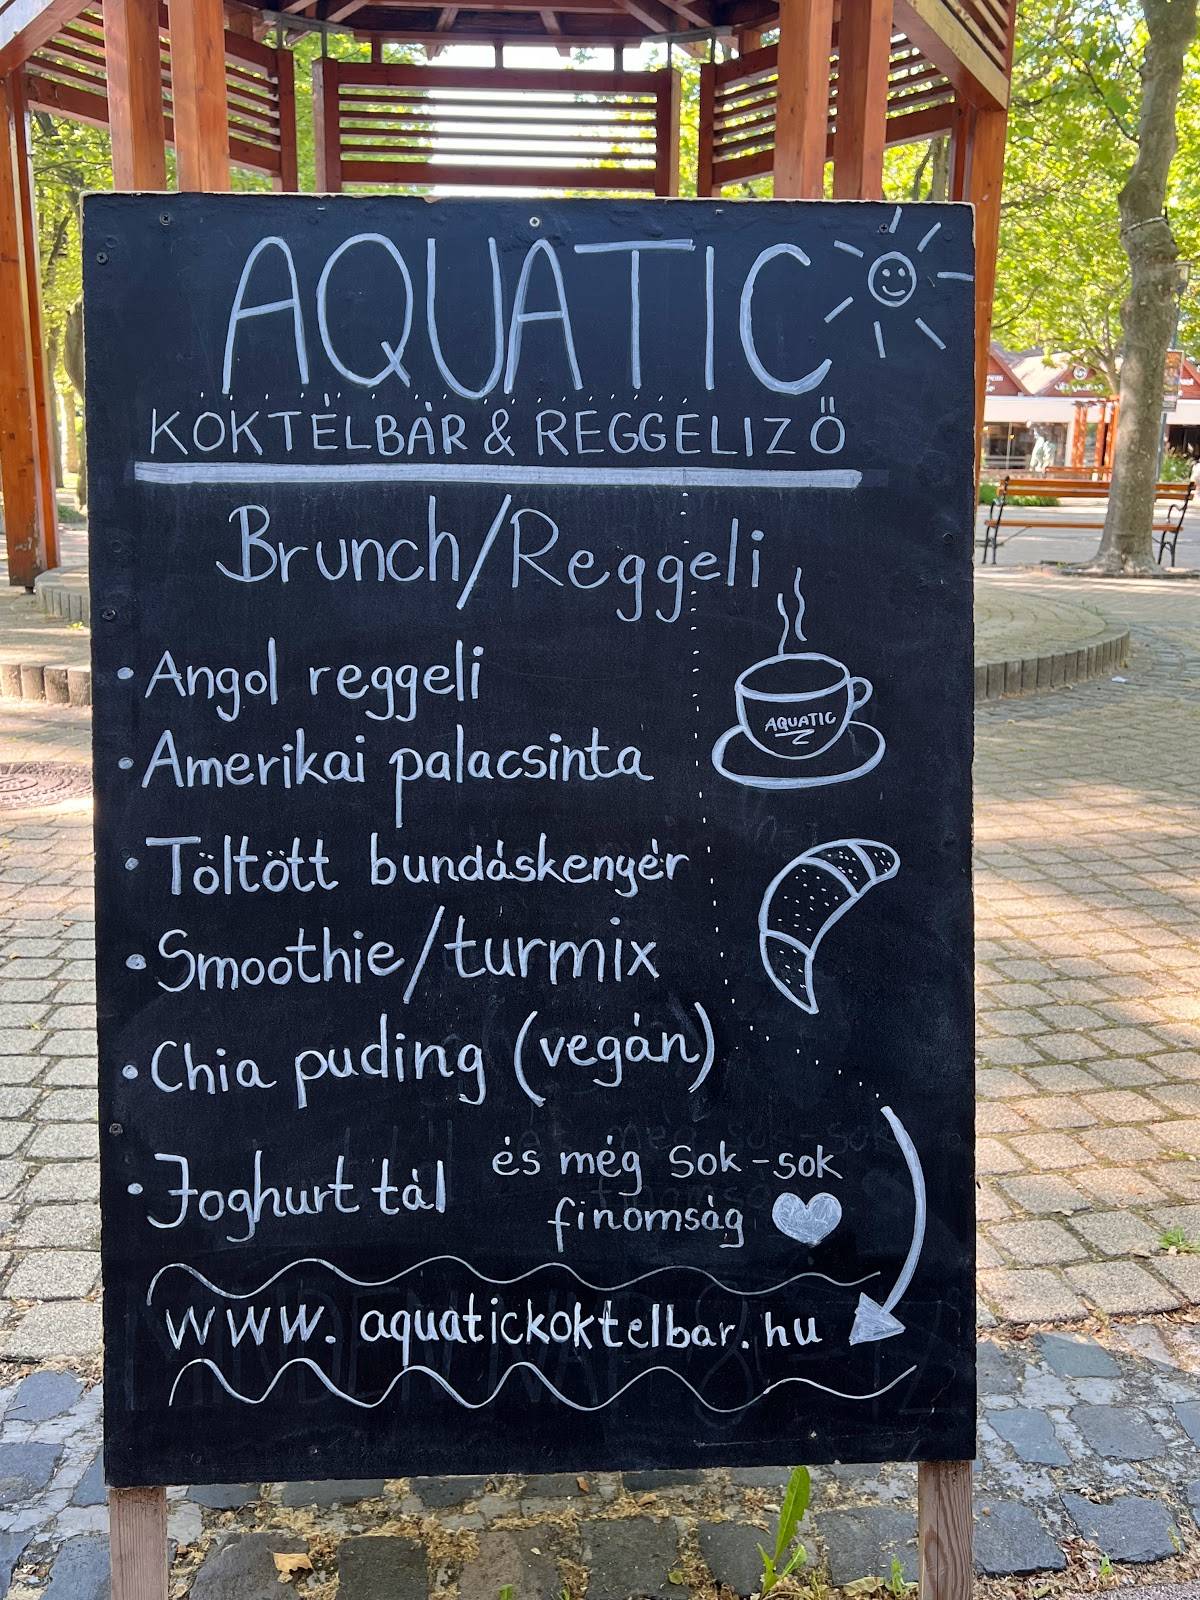 AQUATIC
KOKTÉLBÁR & REGGELIZŐ
Brunch/Reggeli
• Angol reggeli
• Amerikai palacsinta
AQUATIC
• Töltött bundáskenyér
• Smoothie/turmix
• Chia puding (vegán)
• Joghurt tál
és még sok-sok
finomság
www.aquatickoktelbar.hu